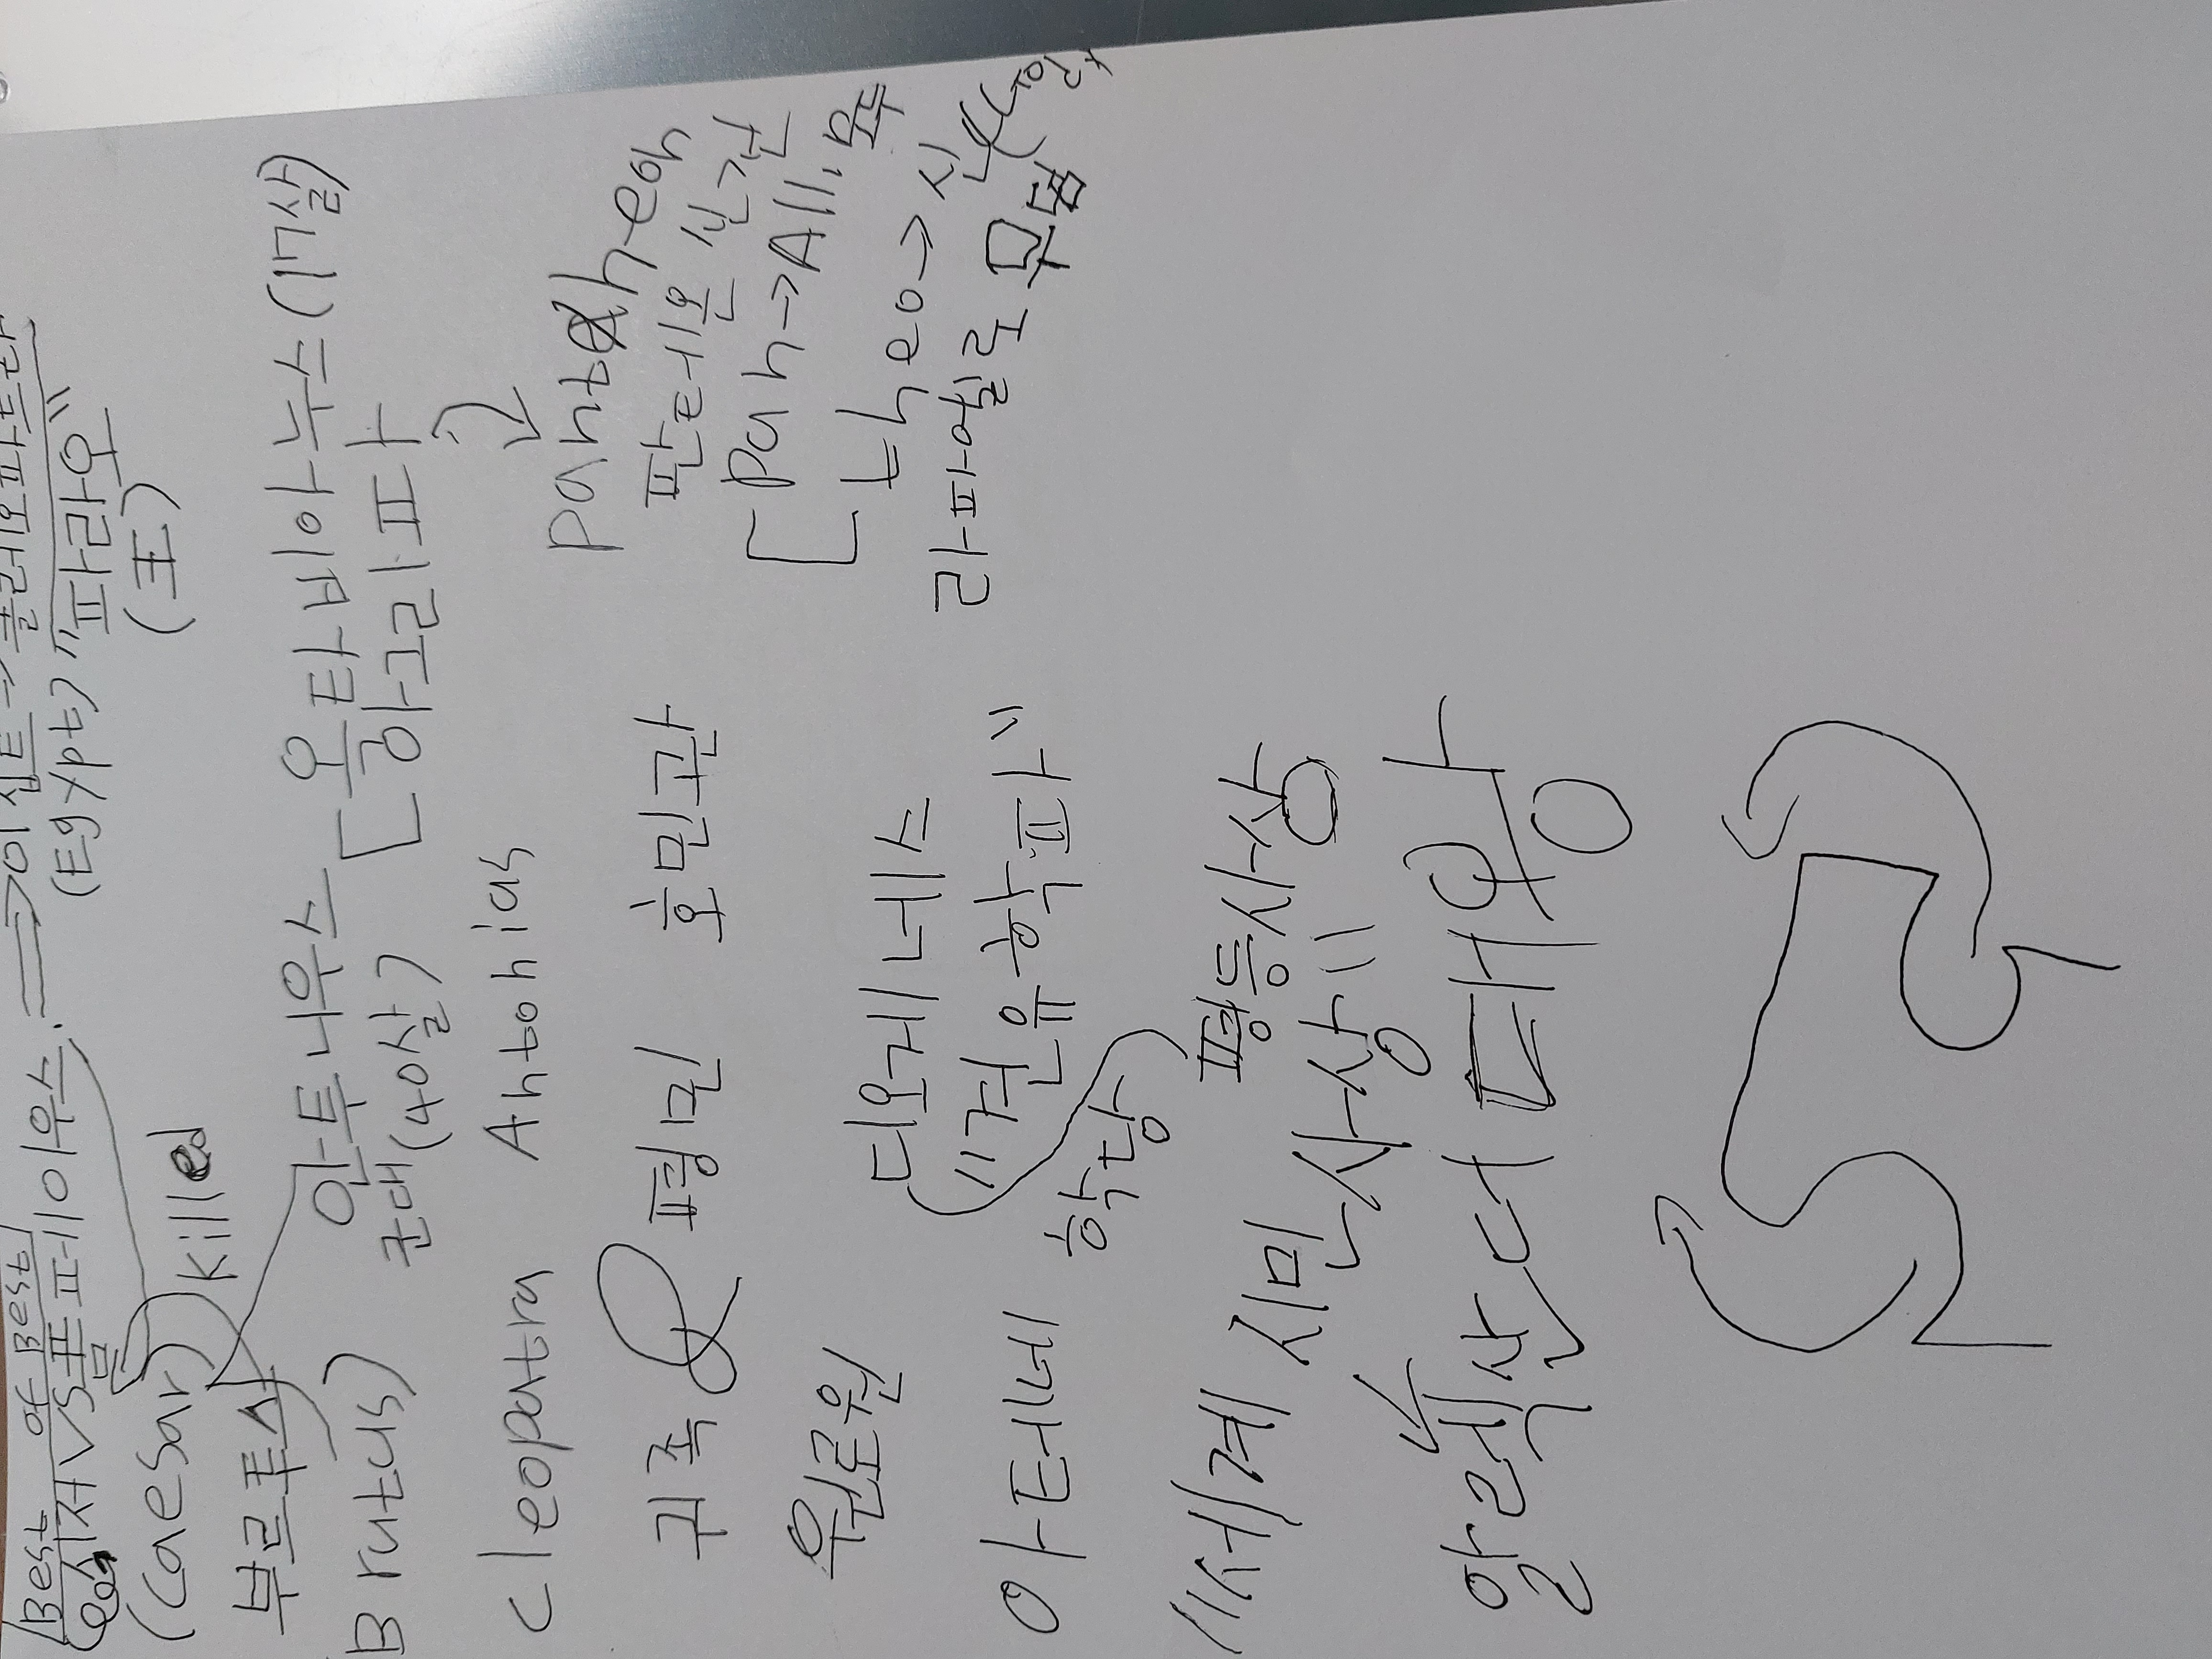 Best of Best
시저 VS 폼페이우스 → 이집트 → 클레오파트라
(Caesar) killed (Egypt) "파라오"
(王)
부르투스 안토니우스 옥타비아누스 (17살)
(Brutus) 군대 (40살) 아그리파
Cleopatra Antonias
Pantheon
귀족 평민 호민관 판테온 신전
Pan → All, 모두
원로원 디오게네스 theo → 신
"견유학파" 라파엘로 무덤
아테네 학당
평등사상
"세계 시민 사상"
알렉산더 대왕